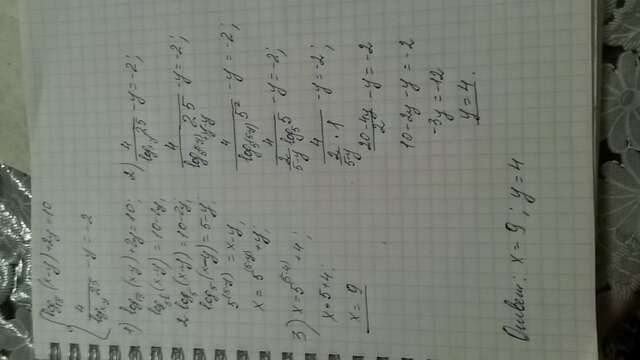 log√5 (x-y)+2y=10
4/log x-y 25 - y = -2
1) log√5 (x-y)+2y=10;
log 5^½ (x-y) = 10-2y,
2 log5 (x-y) = 10-2y,
log5 (x-y) = 5-y,
5^(5-y) = x-y,
x = 5^(5-y) + y;
3) x=5^(5-4) +4;
x=5+4;
x= 9
2) 4/log x-y 25 - y = -2;
4/log 5^(5-y)+y-y 25 - y = -2;
4/log 5^(5-y) 5² - y = -2;
4/(2/5-y log5 5) - y = -2;
4/(2/5-y · 1) - y = -2;
20-4y/2 - y = -2
10-2y -y = -2
-3y = -12
y = 4.
Ответ: x= 9 ; y = 4